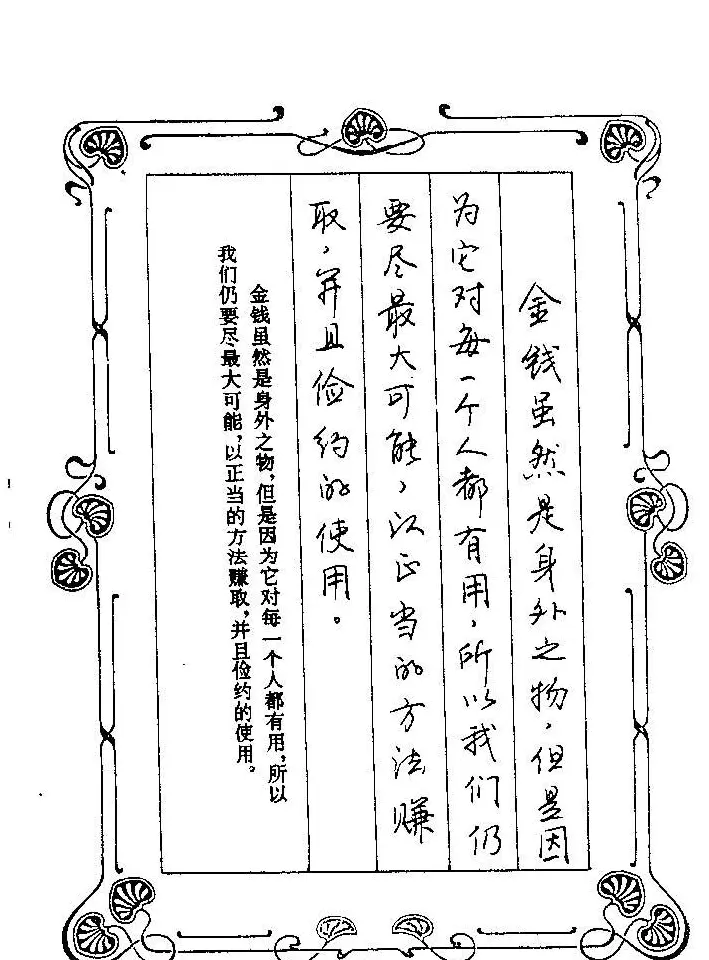 金钱虽然是身外之物，但是因
为它对每一个人都有用，所以我们仍
要尽最大可能，以正当的方法赚
取，并且俭约的使用。
金钱虽然是身外之物，但是因为它对每一个人都有用，所以
我们仍要尽最大可能，以正当的方法赚取，并且俭约的使用。